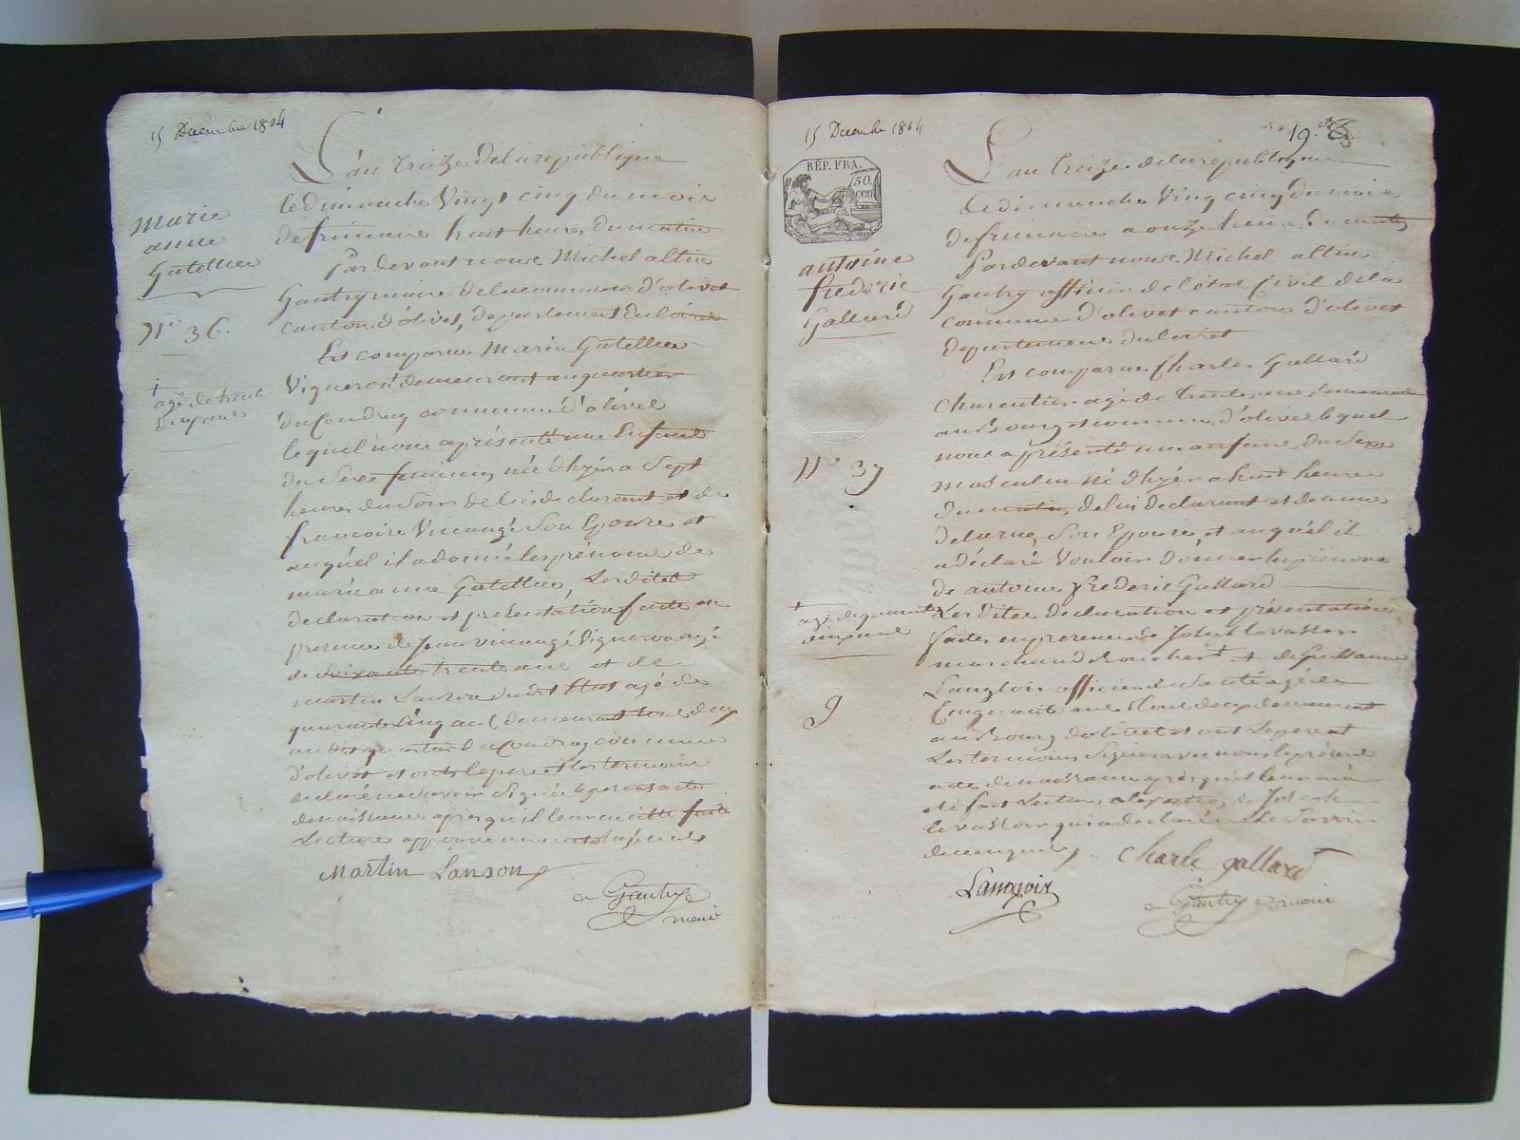 15 Decembre 1804
L'an treize de la republique
le dimanche Vingt cinq du mois
de frimaire huit heures du matin
Marie
anne
Gatellier
Par devant nous Michel altin
Gautry maire de la commune d'olivet
canton d'olivet, departement du loiret
N.o 36.
Est comparu Marin Gatellier
Vigneron demeurant au quartier
+
agé de trent
du Coudray commune d'olivet
lequel nous a présenté une Enfant
du Sexe feminin, née d'hyer a Sept
heures du Soir de lui declarant et de
francoise Vincengé Son Epouse et
auquel il a donné les prénoms de
marie anne Gatellier, Les dites
declaration et présentation faite en
presence de Jean vincengé Vigneron agé
de soixante trente ans et de
martin Lanson agé de
quarante cinq ans demeurant tous deux
au quartier du Coudray commune
d'olivet et ont le pere et les temoins
declaré ne savoir Signé le present acte
de naissance apres qu'il leur en a été fait
Lecture
Martin Lanson
Gautry
maire
15 Decembre 1804
19.
RÉP. FRA.
50
cen
L'an treize de la republique
Le dimanche Vingt cinq du mois
de frimaire a onze heures du matin
antoine
frederic
Gallard
Par devant nous Michel altin
Gautry officier de l'état Civil de la
commune d'olivet canton d'olivet
departement du loiret
Est comparu Charles Gallard
Charentier agé de trente ans demeurant
au Bourg commune d'olivet lequel
nous a présenté un anfant du Sexe
N.o 37
masculin né d'hyer a huit heures
du matin, de lui declarant et de anne
delarue, Son Epouse, et auquel il
a déclaré Vouloir donner les prénoms
de antoine frederic Gallard
+
agé de quarante
cinq ans
Les dites declaration et présentation
faites en presence de Joseph levassor
marchand Boucher + et de Guillaume
Langlois officier de Santé agé de
Cinquante ans tous deux demeurant
9
au Bourg d'olivet et ont le pere et
Les temoins Signé avec nous le présent
acte de naissance après qu'il leur en a
été fait Lecture, a l'exception de Joseph
levassor qui a declaré ne Savoir
de ce enquis
Charle gallard
Gautry maire